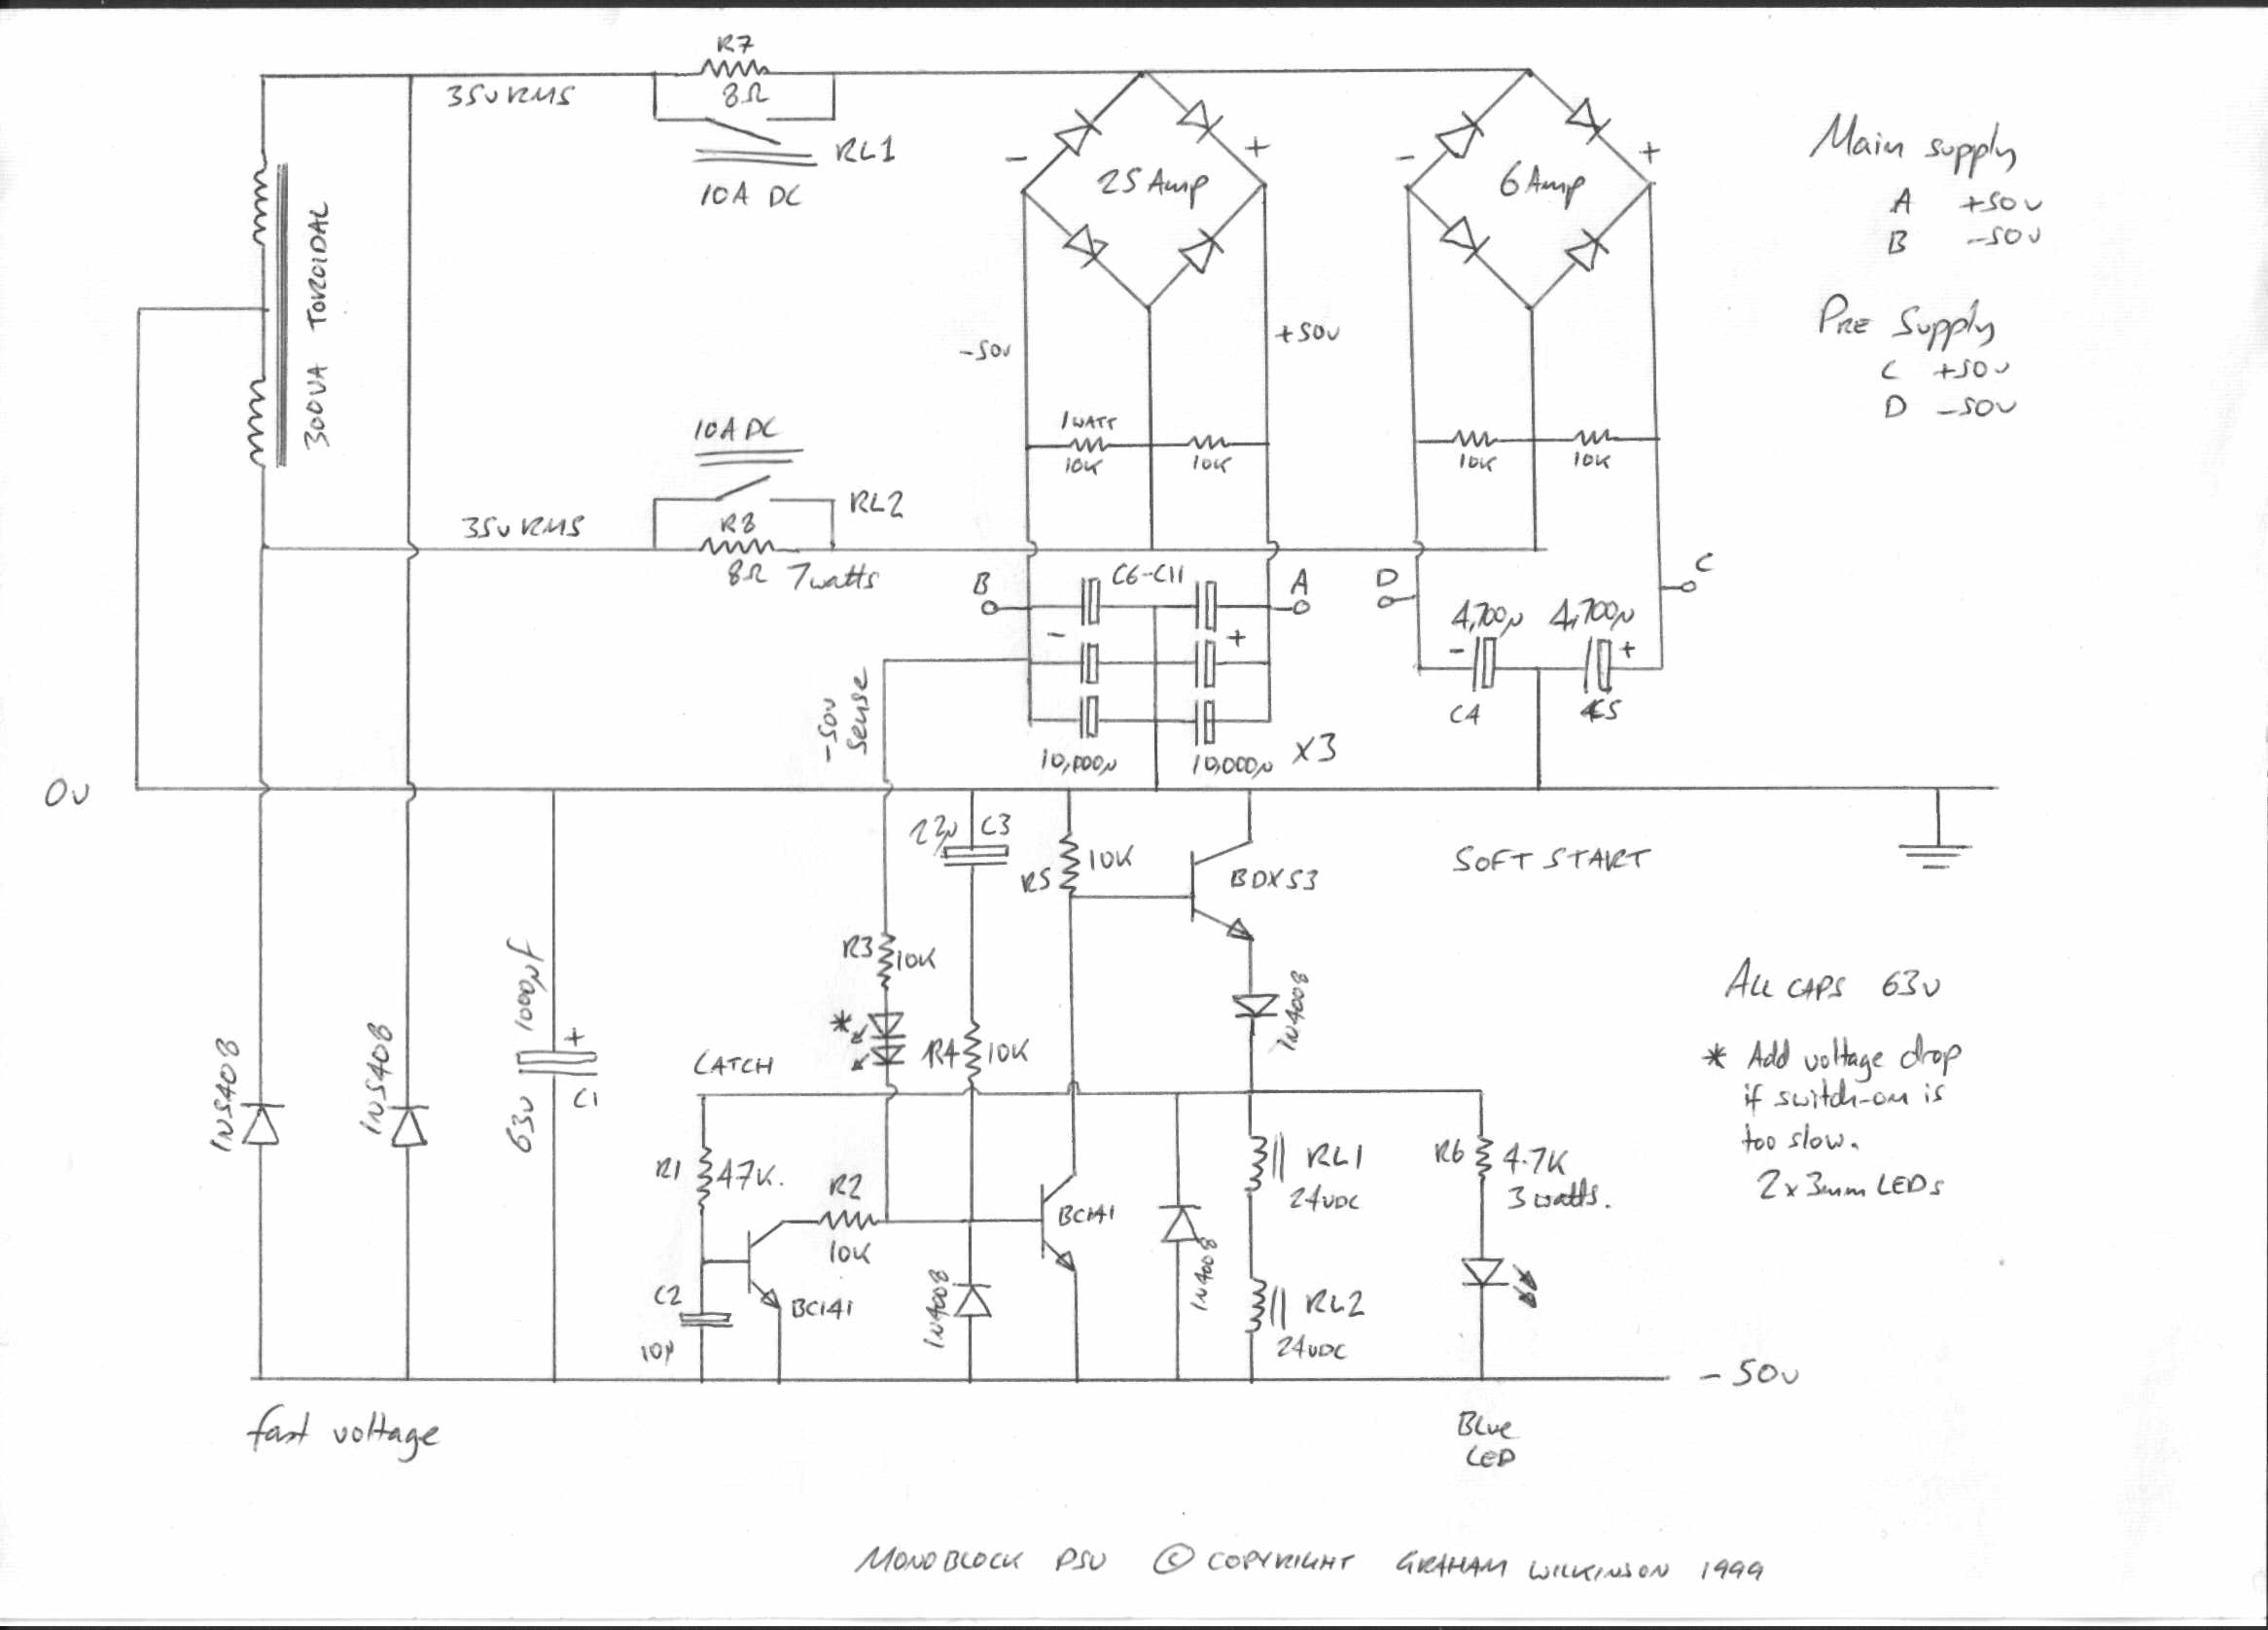 R7
8Ω
35v RMS
RL1
10A DC
25 Amp
-
+
6 Amp
-
+
Main supply
A +50v
B -50v
PRE Supply
C +50v
D -50v
300VA TOROIDAL
-50v
+50v
10A DC
RL2
35v RMS
R8
8Ω 7watts
1 WATT
10K
10K
10K
10K
B
C6-C11
A
D
C
-
+
4,700µ
4,700µ
-
+
C4
C5
-50v
Sense
10,000µ
10,000µ
X3
0v
22µ
C3
R5
10K
BDX53
SOFT START
R3
10K
*
R4
10K
1N4008
ALL CAPS 63v
* Add voltage drop
if switch-on is
too slow.
2x3mm LEDs
1N5408
1N5408
1000µf
63v
+
C1
CATCH
R1
47K.
R2
10K
C2
10µ
BC141
1N4008
BC141
1N4008
RL1
24VDC
RL2
24VDC
R6
4.7K
3 watts.
-50v
fast voltage
Blue
LED
MONOBLOCK PSU © COPYRIGHT GRAHAM WILKINSON 1999